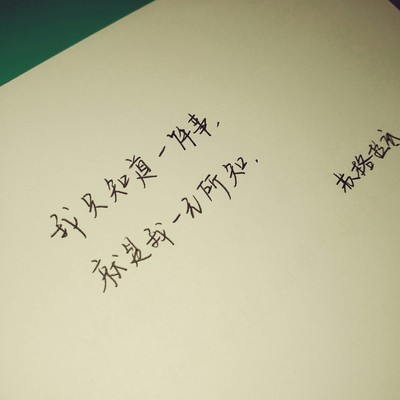 我只知道一件事,
就是我一无所知.
苏格拉底